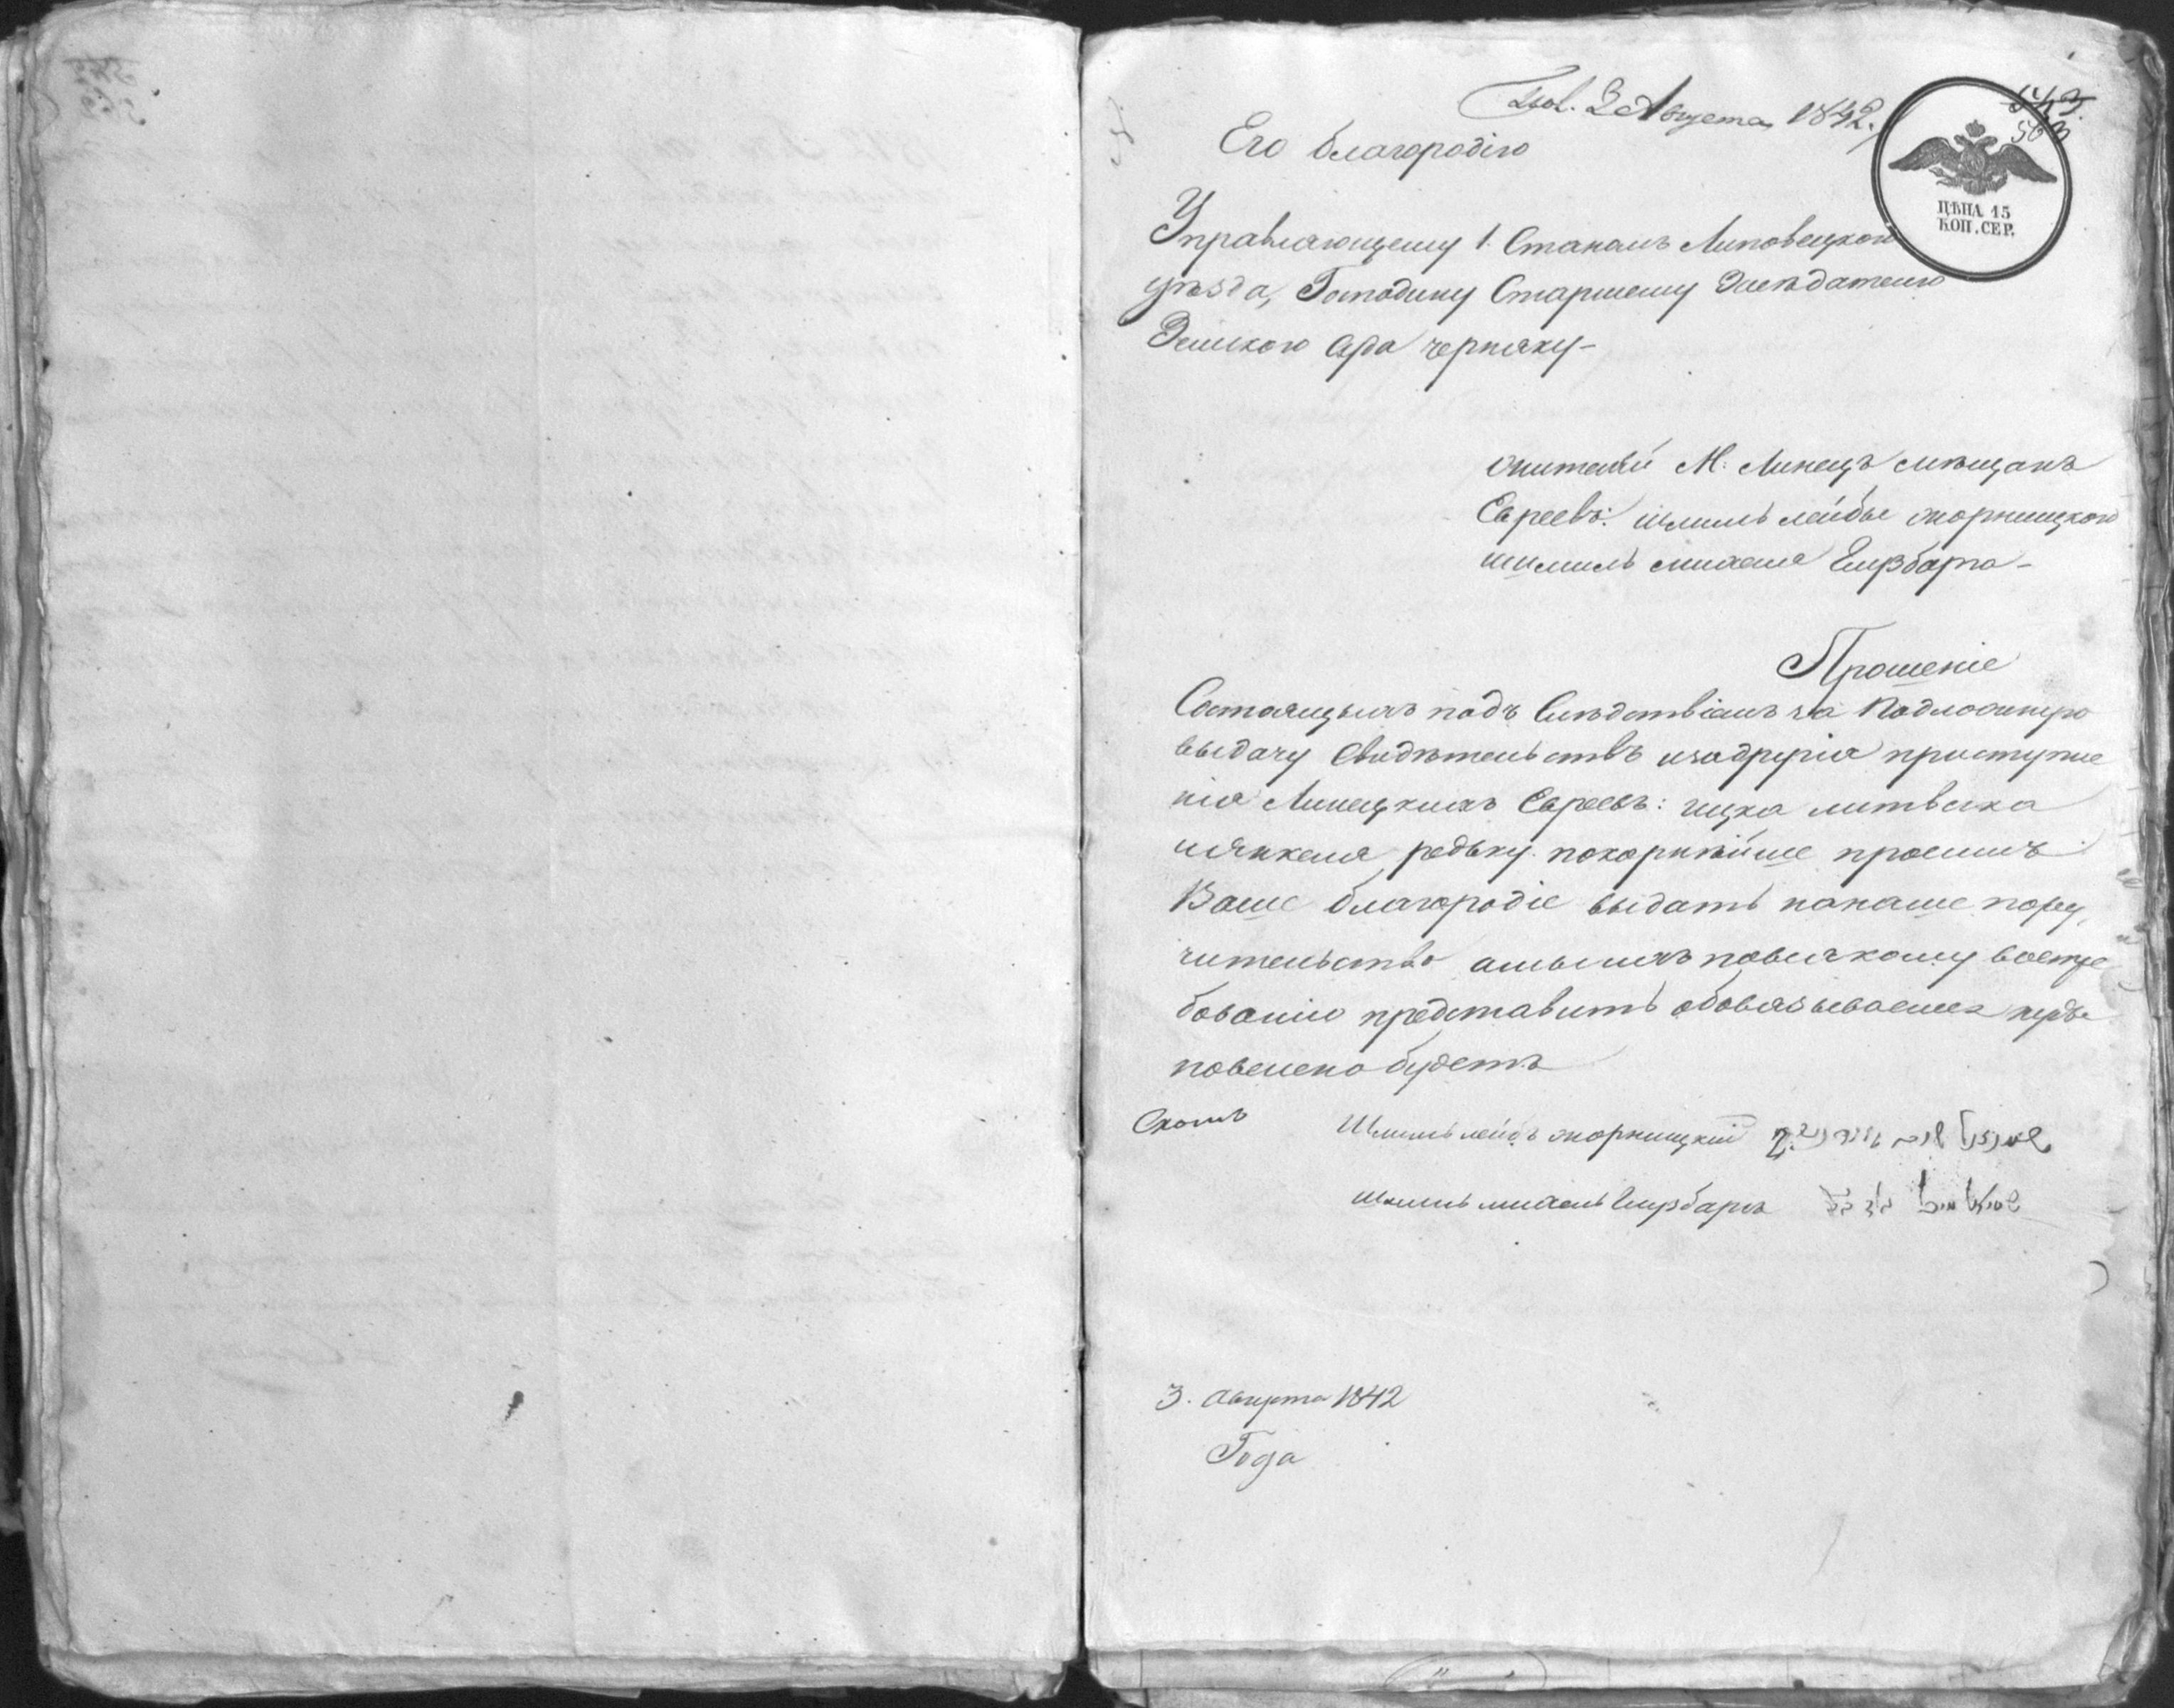 Пол. 3 Августа 1842.
543.
563
ЦѢНА 15
КОП. СЕР.
Его благородію
Управляющему 1. Станомъ Липовецкого
уѣзда, Господину Старшему Засѣдателю
Земского суда Черняку-
жителѣй М: Линецъ мѣщанъ
Евреевъ: шмиль лейбы жорницкого
шмиль михеля Гирзбарга-
Прошеніе
Состоящыхъ подъ Слѣдствіемъ за Подложную
выдачу Свидѣтельствъ изадругія приступле
нія Линецкихъ Евреевъ: ицка литвака
иянкеля редьку. покорнѣйше просимъ
Ваше благородіе выдать нанаше пору,
чительство амыихъ повсякому востре
бованію представить обовязываемся куда
повелено будетъ
Шмиль лейбъ жорницкій
шмиль михель Гирзбаргъ
3. августа 1842
Года